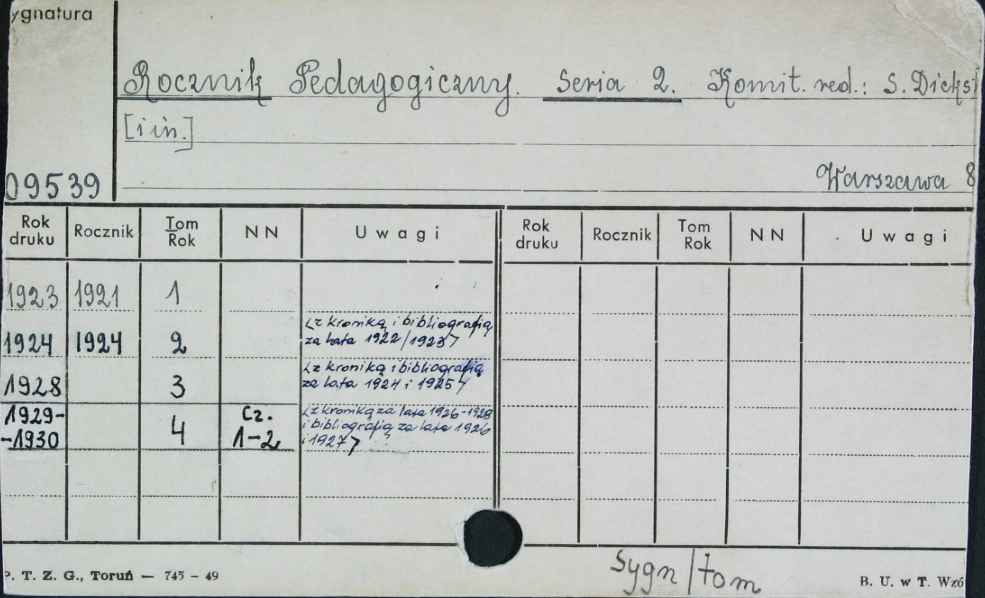 ygnatura
Rocznik Pedagogiczny. Seria 2. Komit. red.: S. Dicksi
[i in.]
09539
Warszawa 8
Rok druku Rocznik Tom Rok NN Uwagi Rok druku Rocznik Tom Rok NN Uwagi
1923 1921 1
1924 1924 2 <z kroniką i bibliografią
za lata 1922/1923>
1928 3 <z kroniką i bibliografią
za lata 1924 i 1925>
1929- Cz. <z kroniką za lata 1926-1928
-1930 4 1-2 i bibliografią za lata 1926
i 1927>
P. T. Z. G., Toruń — 745 - 49
Sygn/tom
B. U. w T. Wzó